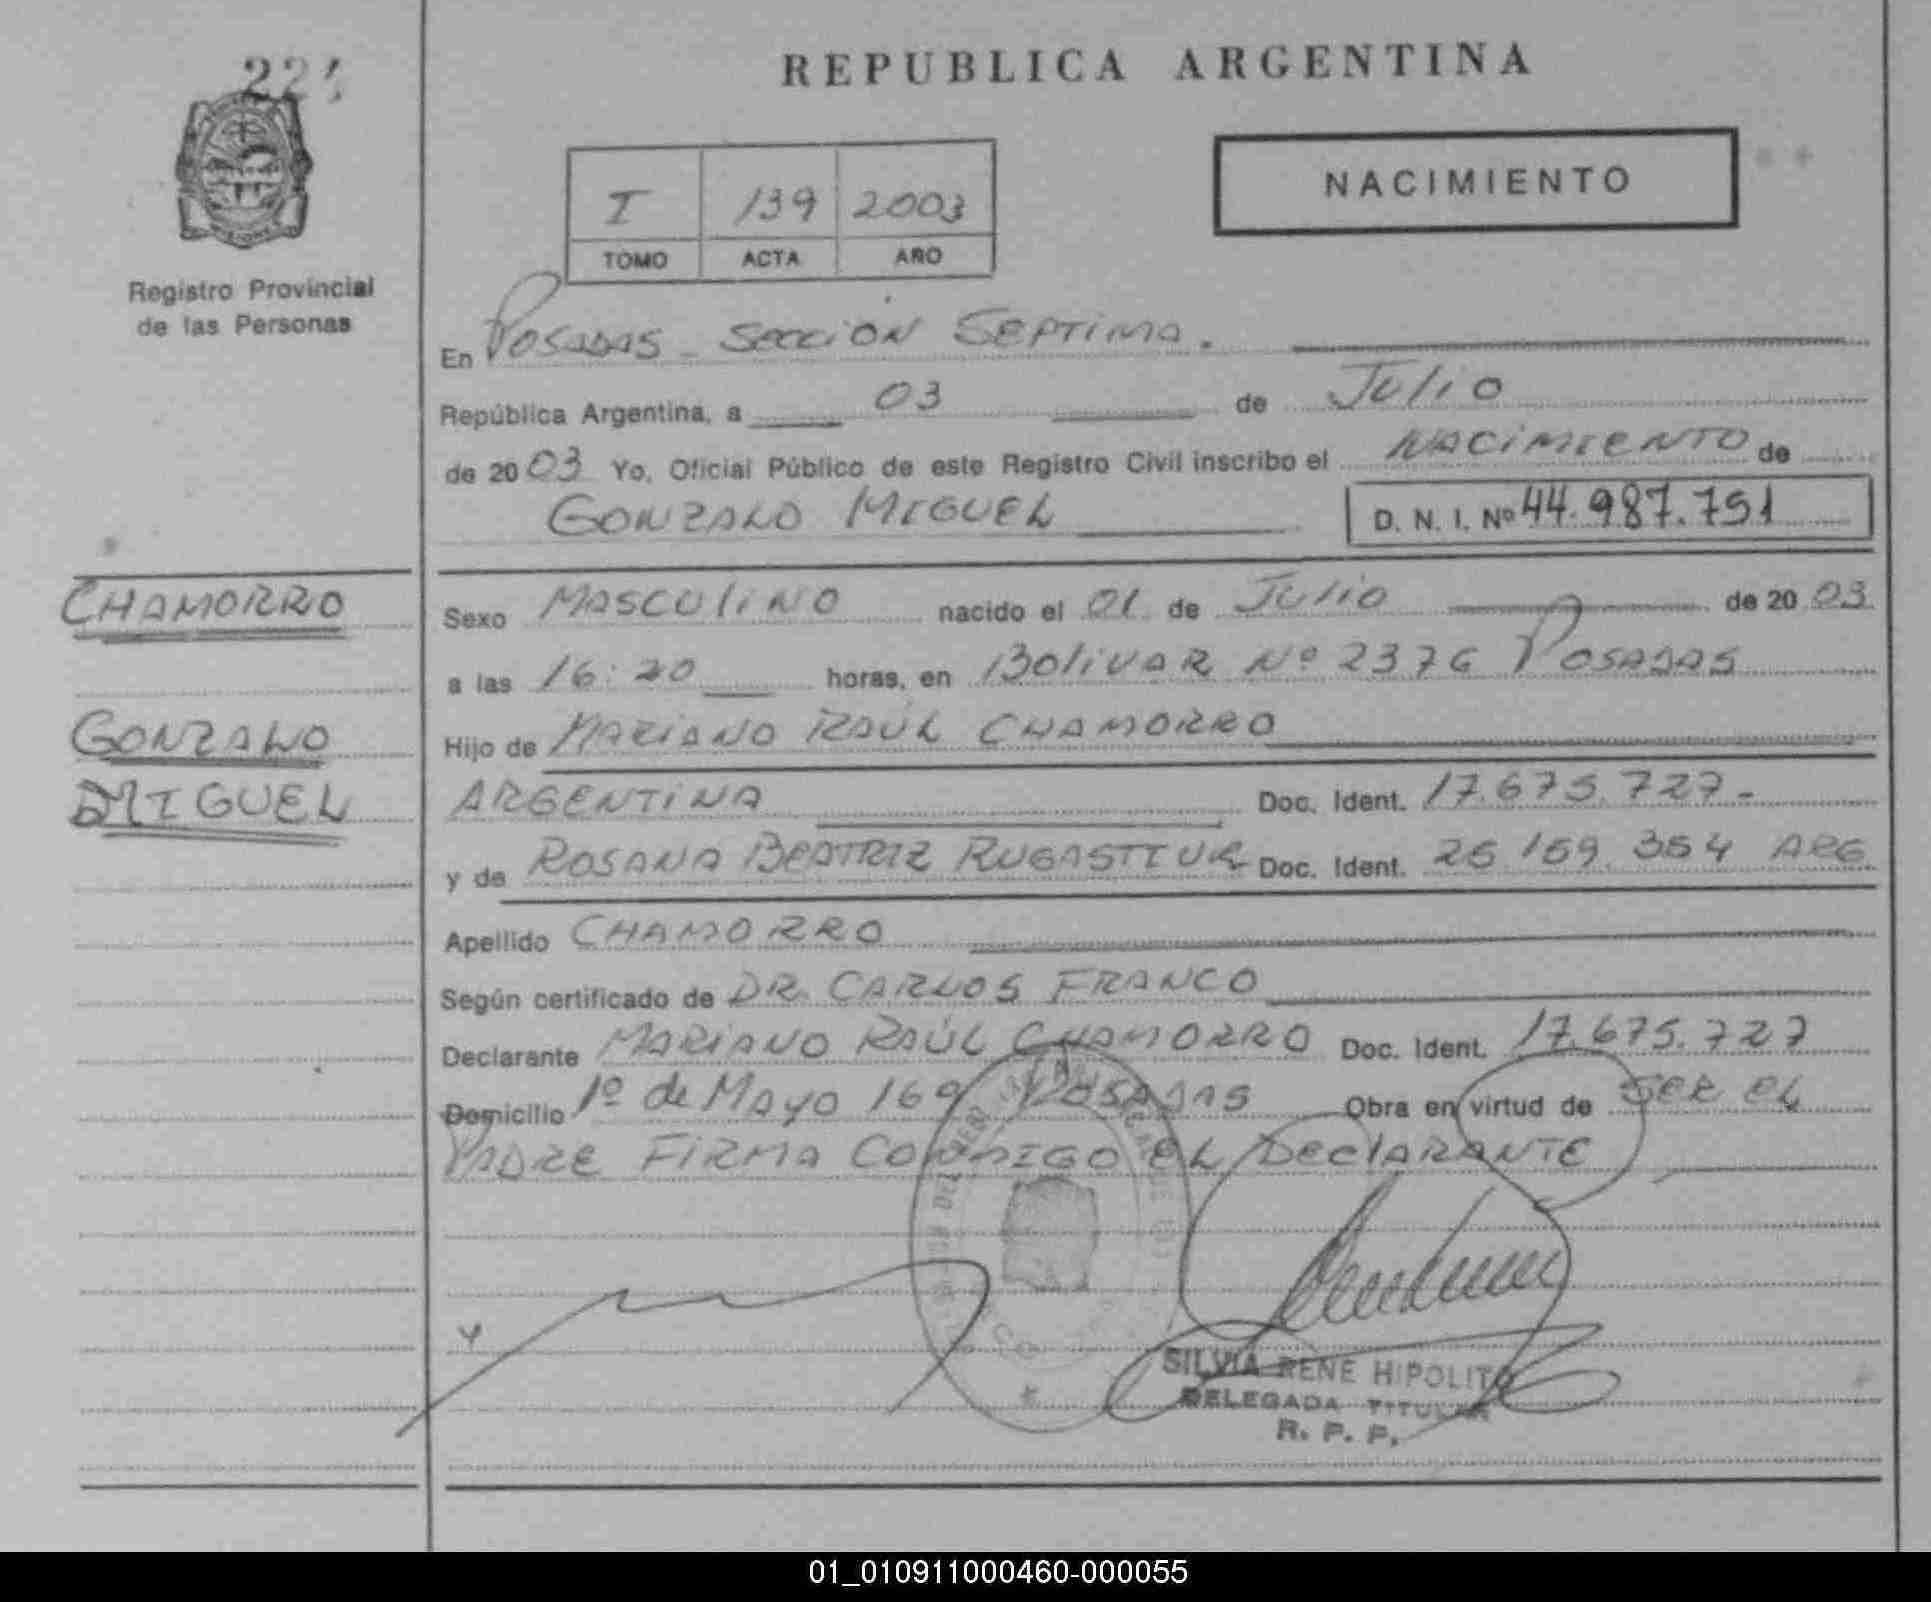 REPUBLICA ARGENTINA
NACIMIENTO
I 139 2003
TOMO ACTA AÑO
Registro Provincial
de las Personas
En POSADAS - SECCIÓN SEPTIMA.
República Argentina, a 03 de JULIO
de 2003 Yo, Oficial Público de este Registro Civil inscribo el NACIMIENTO de
GONZALO MIGUEL D. N. I. Nº 44.987.751
CHAMORRO
GONZALO
MIGUEL
Sexo MASCULINO nacido el 01 de JULIO de 2003
a las 16:20 horas, en BOLIVAR Nº 2376 POSADAS
Hijo de MARIANO RAÚL CHAMORRO
ARGENTINA Doc. Ident. 17.675.727-
y de ROSANA BEATRIZ Doc. Ident. ARG
Apellido CHAMORRO
Según certificado de DR. CARLOS FRANCO
Declarante MARIANO RAÚL CHAMORRO Doc. Ident. 17.675.727
Domicilio 1º de MAYO 169 POSADAS Obra en virtud de SER EL
PADRE FIRMA CONMIGO EL DECLARANTE
SILVIA RENE HIPOLITO
DELEGADA TITULAR
R. P. P.
01_010911000460-000055